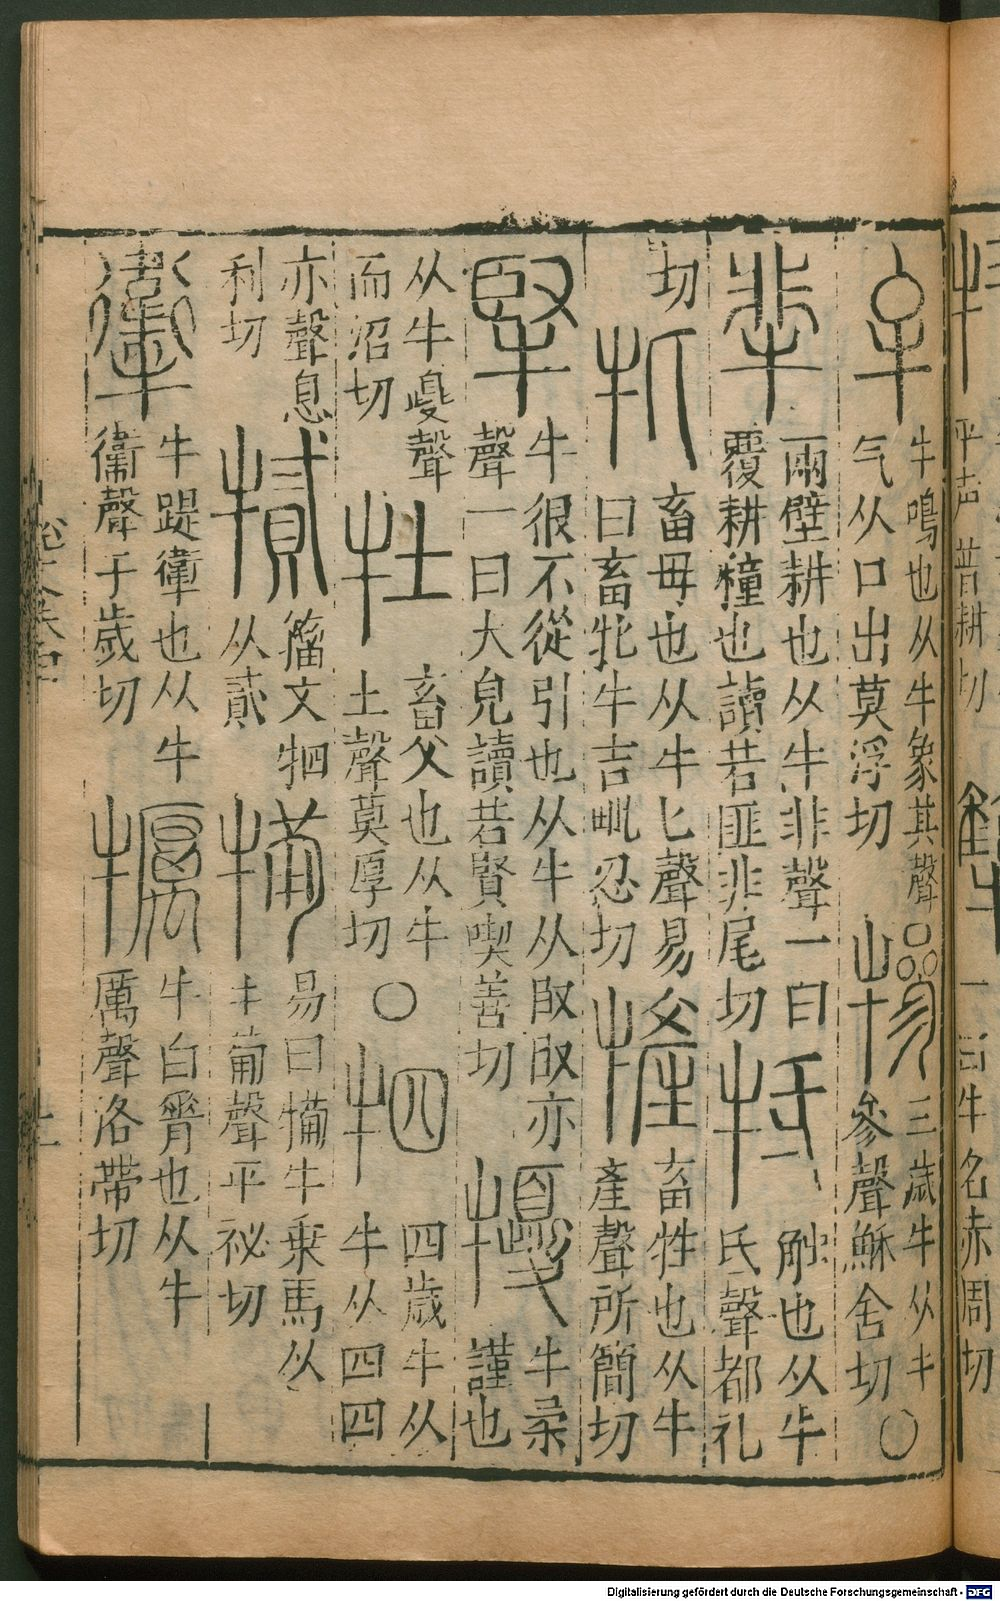 牟 牛鳴也从牛象其聲
气从口出莫浮切
犙 三歲牛从牛
參聲穌含切〇
兩壁耕也从牛非聲一曰
覆耕種也讀若匪非尾切
牴 觝也从牛
氐聲都礼
切
牝 畜母也从牛匕聲易
曰畜牝牛吉毗忍切
㹌 畜牲也从牛
產聲所簡切
牼 牛很不從引也从牛从臤臤亦
聲一曰大皃讀若賢喫善切
㹛 牛柔
謹也
从牛夒聲
而沼切
牡 畜父也从牛
土聲莫厚切
〇
牭 四歲牛从
牛从四四
亦聲息
利切
籀文牭
从貳
犕 易曰犕牛乗馬从
牛𤰇聲平祕切
牛踶衞也从牛
衞聲于歲切
犡 牛白脊也从牛
厲聲洛帶切
平声 普耕切
一曰牛名赤周切
Digitalisierung gefördert durch die Deutsche Forschungsgemeinschaft - DFG